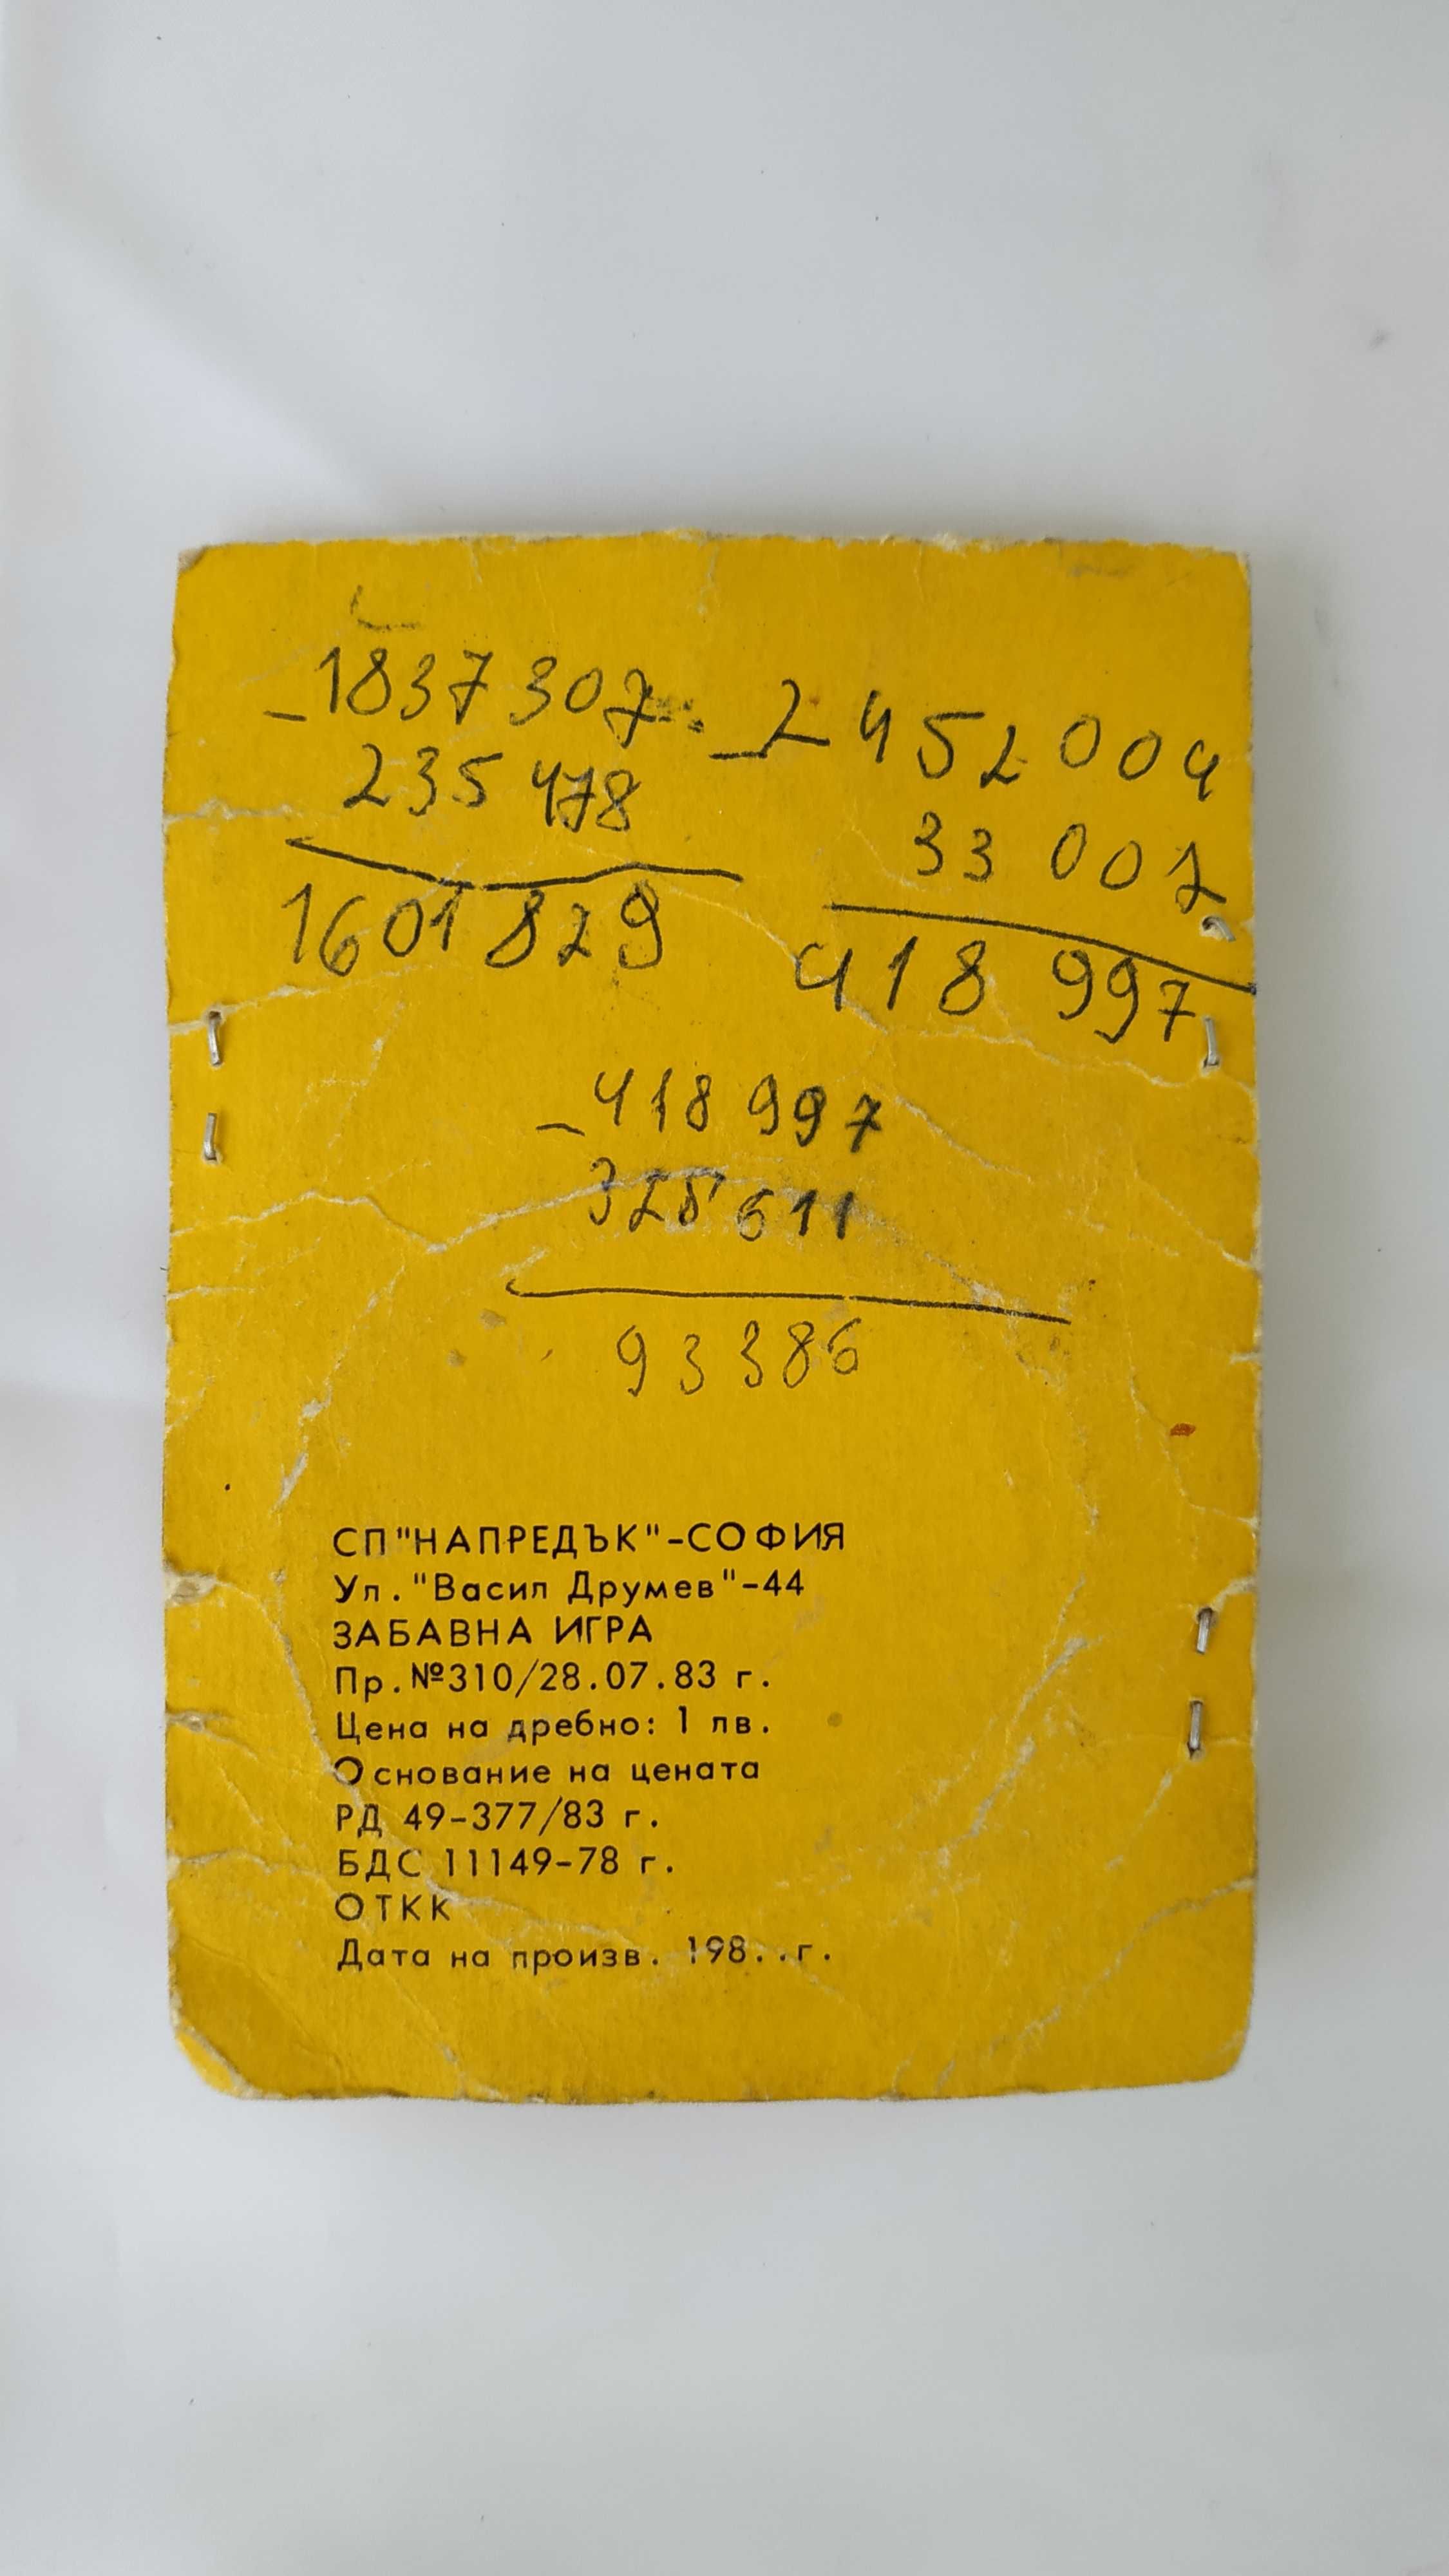 - 1837 307
235 478
1601 829
- 2 452 004
33 007
418 997
- 418 997
325 611
93 386
СП "НАПРЕДЪК"-СОФИЯ
Ул. "Васил Друмев"-44
ЗАБАВНА ИГРА
Пр.№310/28.07.83 г.
Цена на дребно: 1 лв.
Основание на цената
РД 49-377/83 г.
БДС 11149-78 г.
ОТКК
Дата на произв. 198..г.